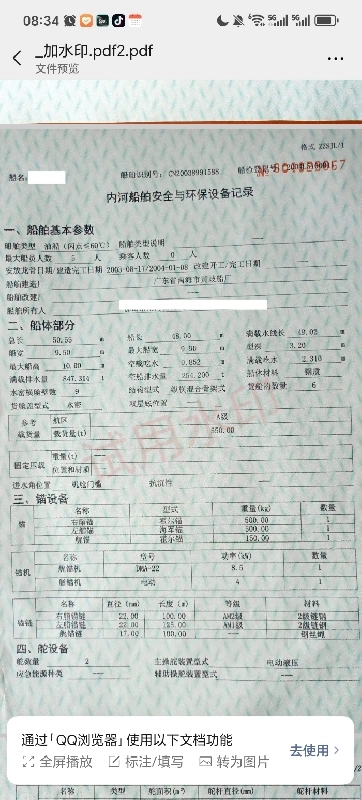 08:34
_加水印.pdf2.pdf
文件预览
格式 ZZSJL/1
船名:
船舶识别号: CN20038991588
内河船舶安全与环保设备记录
一、船舶基本参数
船舶类型 油船(闪点≤60℃) 船舶类型说明
最大船员人数 5 人 乘客人数 0 人
安放龙骨日期/建造完工日期 2003-08-17/2004-01-08 改建开工/完工日期
船舶建造厂
船舶改建厂
船舶所有人
二、船体部分
总长 50.55 m 船长 48.00 m 满载水线长 49.02 m
船宽 9.50 m 最大船宽 9.80 m 型深 3.20 m
最大船高 10.80 m 空载吃水 0.852 m 满载吃水 2.310 m
满载排水量 847.314 t 空船排水量 254.200 t 船体材料 钢质
水密横舱壁数 9 结构型式 纵横混合骨架式 货舱的数量 6
货舱盖型式 水密 双层底位置
参考载货量 航区 A级
载货量(t) 550.00
固定压载 重量(t)
位置和材质
进水角位置 机舱门槛 抗沉性
三、锚设备
名称 型式 重量(kg) 数量
锚 右船锚 霍尔锚 500.00 1
左船锚 海军锚 500.00 1
艉锚 霍尔锚 150.00 1
名称 型号 功率(kW) 数量
锚机 艏锚机 DMA-22 8.5 1
艉锚机 电动 4 1
名称 直径(mm) 长度(m) 等级 材料
锚链 右船锚链 22.00 100.00 AM2级 2级链钢
左船锚链 22.00 125.00 AM1级 2级链钢
艉锚链 17.00 100.00 钢丝绳
四、舵设备
舵数量 2 主操舵装置型式 电动液压
应急能源种类 辅助操舵装置型式
通过「QQ浏览器」使用以下文档功能
全屏播放 标注/填写 转为图片
去使用 >
名称 类型 舵面积(m²) 舵杆直径(mm) 舵杆材料